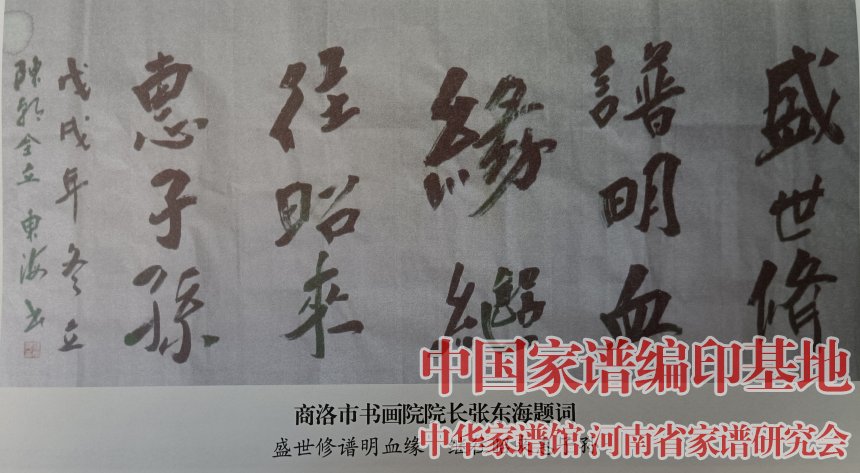 盛世修
譜明血
緣繼
往昭來
惠子孫
戊戌年冬立
全立 東海书
商洛市书画院院长张东海题词
盛世修谱明血缘
中国家谱编印基地
中华家谱馆 河南省家谱研究会